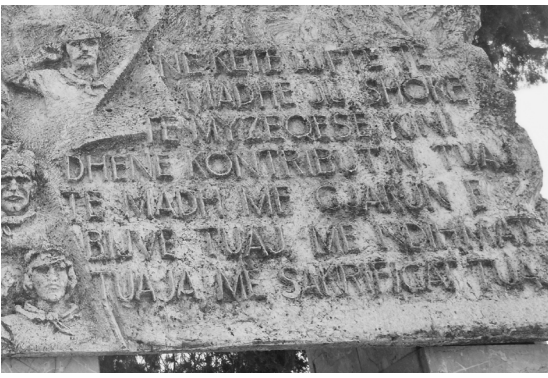 NE KETE LUFTE TE
MADHE JU SHOKE
TE MYZEQESE KINI
DHENE KONTRIBUTIN TUAJ
TE MADH ME GJAKUN E
BIJVE TUAJ ME NDIHMAT
TUAJA ME SAKRIFICAT TUA